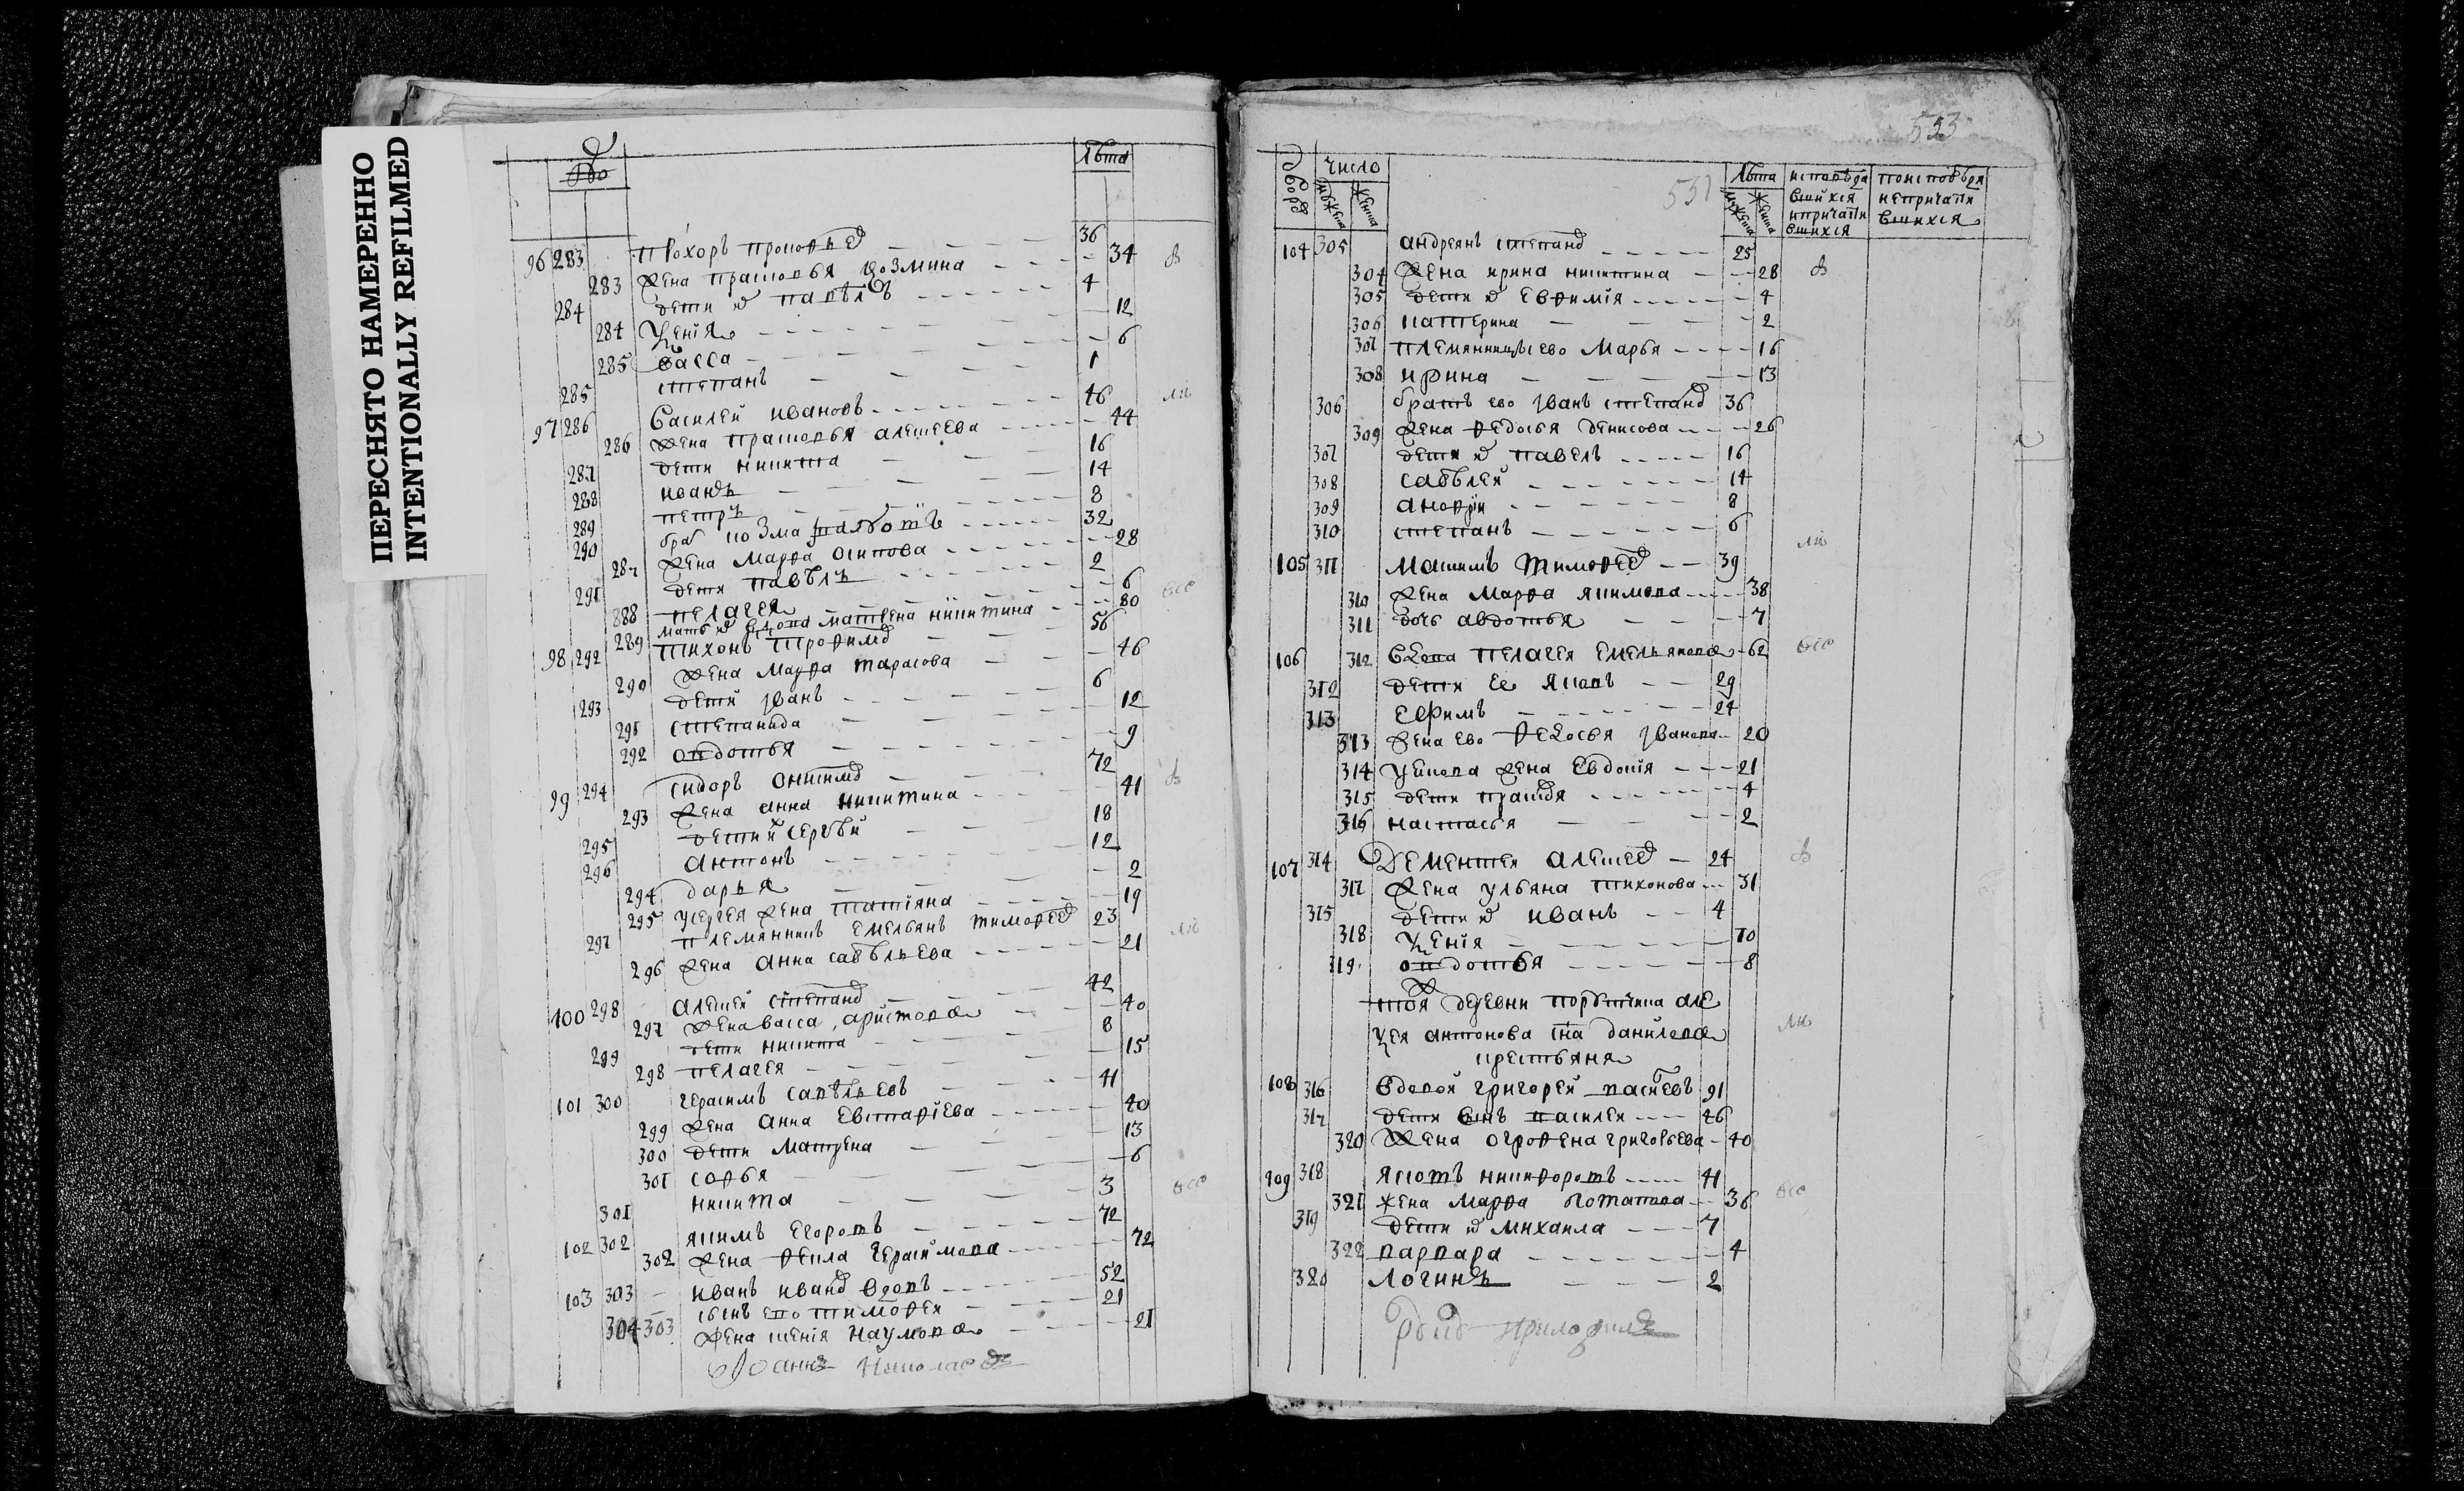 ПЕРЕСНЯТО НАМЕРЕННО
INTENTIONALLY REFILMED
лѣта
96 283 Прохоръ Прокофьевъ 36
283 жена Прасковья Козмина 34
284 дети Павѣлъ 4
284 Ксенія 12
285 Васса 6
285 степанъ 1
97 286 Василей Ивановъ 46
286 жена Прасковья алексеева 44
287 дети никита 16
288 иванъ 14
289 петръ 8
290 братъ козма 32
287 жена Марѳа осипова 28
291 дети павѣлъ 2
288 пелагея 6
289 мать вдова матрена никитина 80
98 292 Тихонъ Трофимовъ 56
290 жена Марѳа тарасова 46
293 дети Іванъ 6
291 степанида 12
292 овдотья 9
99 294 Сидоръ 72
293 жена анна никитина 41
295 дети сергѣй 18
296 антонъ 12
294 дарья 2
295 у сергея жена татіяна 19
297 племянникъ емельянъ тимофеевъ 23
296 жена анна савѣльева 21
100 298 алексей степановъ 42
297 жена васса аристова 40
299 дети никита 8
298 пелагея 15
101 300 герасимъ савѣльевъ 41
299 жена анна евстафіева 40
300 дети матрена 13
301 софья 6
301 никита 3
102 302 якимъ егоровъ 72
302 жена фекла герасимова 72
103 303 иванъ ивановъ вдовъ 52
304 сынъ ево тимофей 21
303 жена ксенія наумова 21
Іоаннъ Николаевъ
533
531
число лѣта исповѣда поисповѣдя
вшихся непричасти
и причасти вшихся
вшихся
104 305 андреянъ степановъ 25
304 жена ирина никитина 28
305 дети евфимія 4
306 катерина 2
307 племянницы ево Марья 16
308 ирина 13
306 братъ ево Іванъ степановъ 36
309 жена федосья денисова 26
307 дети павелъ 16
308 савѣлей 14
309 8
310 степанъ 6
105 311 Максимъ тимофеевъ 39
310 жена Марѳа якимова 38
311 дочь авдотья 7
106 312 вдова пелагея емельянова 62
312 дети ее яковъ 29
313 ефимъ 24
313 жена ево федосья Іванова 20
314 у якова жена евдокія 21
315 дети 4
316 настасья 2
107 314 Дементей алексеевъ 24
317 жена ульяна тихонова 31
315 дети иванъ 4
318 Ксенія 10
319 овдотья 8
тоя деревни порутчика але
ксея антонова сна данилова
крестьяня
108 316 вдовой григорей 91
317 дети сынъ василей 46
320 жена огрофена григорьева 40
109 318 яковъ никифоровъ 41
321 жена Марѳа потапова 36
319 дети михаила 7
322 варвара 4
320 логинъ 2
руку приложилъ